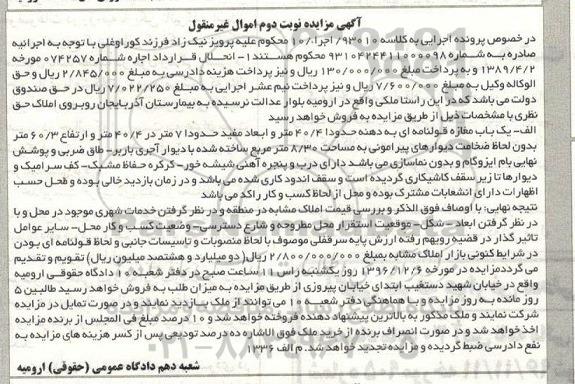 آگهی مزایده نوبت دوم اموال غیرمنقول
در خصوص پرونده اجرایی به کلاسه ۹۳۰۱۰ / اجرا/۱۰ محکوم علیه پرویز نیک زاد فرزند کوراوغلی با توجه به اجرائیه
صادره به شماره ۹۳۱۰۴۲۴۴۱۱۰۰۰۰۹۸ محکوم هستند ۱ - انحلال قرارداد اجاره شماره ۰۷۴۲۵۷ مورخه
۱۳۸۹/۴/۲ و به پرداخت مبلغ ۱۳۰/۰۰۰/۰۰۰ ریال و نیز پرداخت هزینه دادرسی به مبلغ ۲/۸۴۵/۰۰۰ ریال و حق
الوکاله وکیل به مبلغ ۷/۶۰۰/۰۰۰ ریال و نیز پرداخت نیم عشر اجرایی به مبلغ ۷/۰۲۲/۲۵۰ ریال در حق صندوق
دولت می باشد که در این راستا ملکی واقع در ارومیه بلوار عدالت نرسیده به بیمارستان آذربایجان روبروی املاک حق
نظری با مشخصات ذیل از طریق مزایده به فروش خواهد رسید
الف- یک باب مغازه قولنامه ای به دهنه حدودا ۴/۴۰ متر و ابعاد مفید حدودا ۷ متر در ۴/۴۰ متر و ارتفاع ۳/۶۰ متر
بدون لحاظ ضخامت دیوارهای پیرامونی به مساحت ۸/۳۰ متر مربع ساخته شده با دیوار آجری باربر- طاق ضربی و پوشش
نهایی بام ایزوگام و بدون نماسازی می باشد دارای درب و پنجره آهنی شیشه خور- کرکره حفاظ مشبک- کف سرامیک و
دیوارها تا زیر سقف کاشیکاری گردیده است و سقف اندود کاری شده می باشد و در زمان بازدید خالی بوده و طحل حسب
اظهارات دارای انشعابات مشترک بوده و محل از لحاظ کسب و کار راکد می باشد
نتیجه نهایی: با اوصاف فوق الذکر و بررسی قیمت املاک مشابه در منطقه و در نظر گرفتن خدمات شهری موجود در محل و با
در نظر گرفتن ابعاد - شکل- موقعیت استقرار محل مطروحه و شارع دسترسی- وضعیت کسب و کار محل- سایر عوامل
تاثیر گذار در قضیه رویهم رفته ارزش پایه سرقفلی موصوف با لحاظ منصوبات و تاسیسات جانبی و لحاظ قولنامه ای بودن
در شرایط کنونی بازار املاک مشابه بمبلغ ۲/۸۰۰/۰۰۰/۰۰۰ ریال (دو میلیارد و هشتصد میلیون ریال) تقویم و تقدیم
می گردد مزایده در مورخه ۱۳۹۶/۱۲/۶ روز یکشنبه راس ۱۱ ساعت صبح در دفتر شعبه ۱۰ دادگاه حقوقی ارومیه
واقع در خیابان شهید دستغیب ابتدای خیابان پیروزی از طریق مزایده به میزان طلب به فروش خواهد رسید طالبین ۵
روز مانده به روز مزایده و با هماهنگی دفتر شعبه ۱۰ می توانند از ملک بازدید نمایند و در صورت تمایل در مزایده
شرکت نمایند و ملک مذکور به بالاترین پیشنهاد دهنده فروخته خواهد شد و ۱۰ درصد مبلغ فی المجلس از برنده مزایده
اخذ خواهد شد و در صورت انصراف برنده از خرید ملک فوق الاشاره ده درصد تودیعی پس از کسر هزینه های مزایده به
نفع دادرسی ضبط گردیده و مزایده تجدید خواهد شد. م الف ۱۳۳۶
شعبه دهم دادگاه عمومی (حقوقی) ارومیه